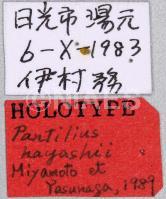 日光市湯元
6-X-1983
伊村務
HOLOTYPE
Pantilius
hayashii
Miyamoto et
Yasunaga, 1989